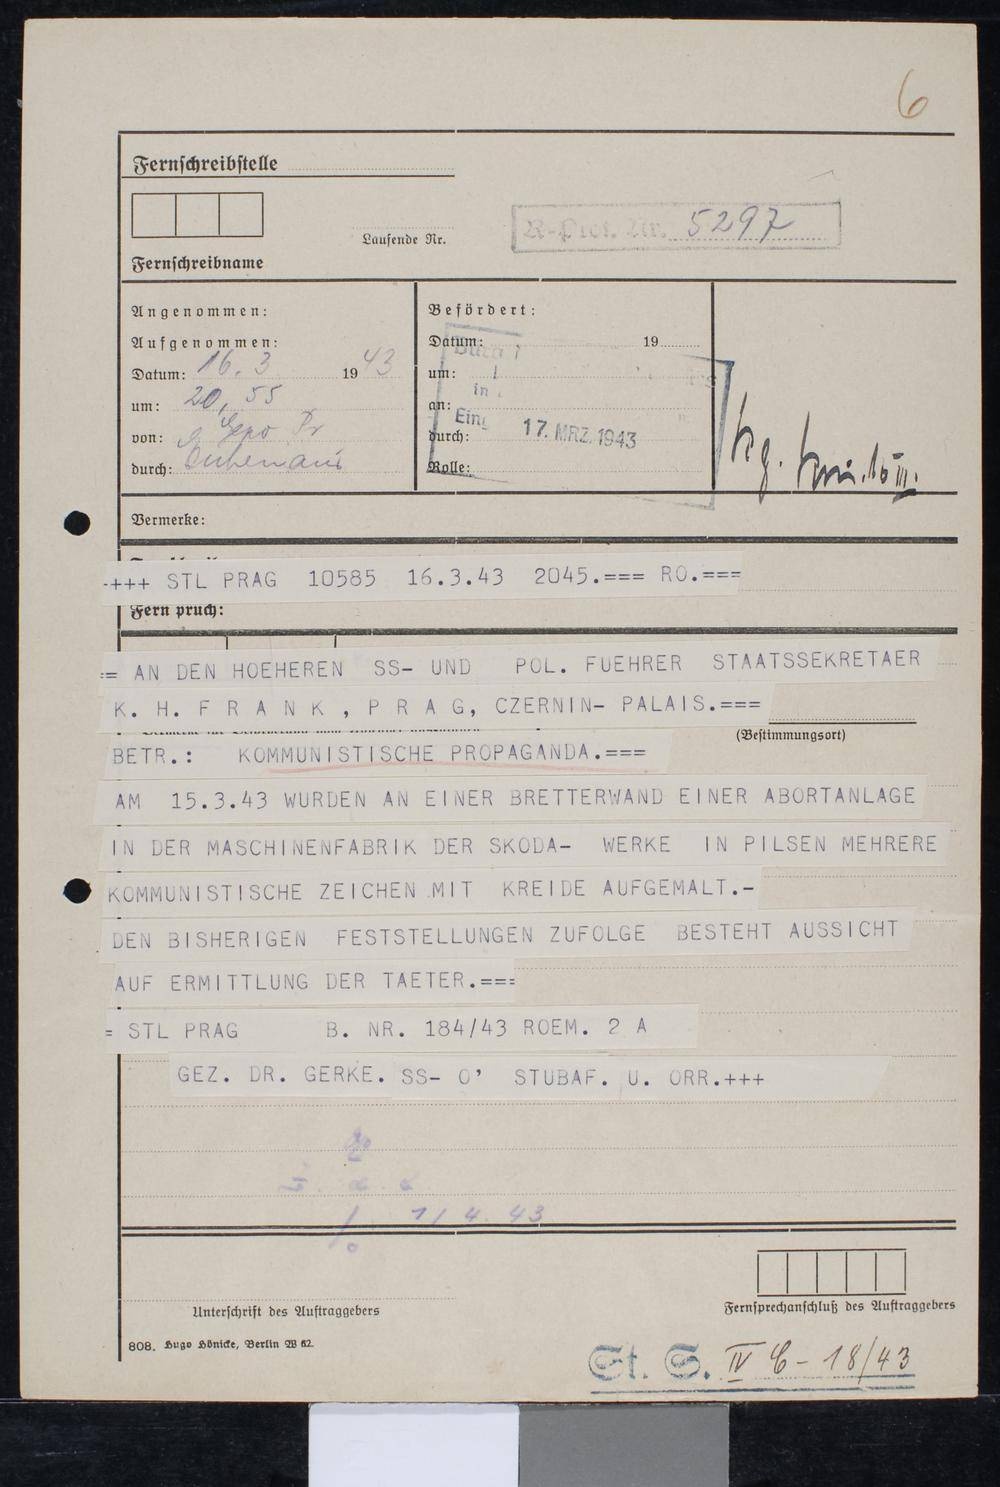 6
Fernschreibstelle
R-Prot. Nr. 5297
Laufende Nr.
Fernschreibname
Angenommen:
Aufgenommen:
Datum: 16. 3 1943
um: 20,55
von:
durch:
Befördert:
Datum: 19
um:
in
an:
Eing
durch: 17. MRZ. 1943
Rolle:
Vermerke:
+++ STL PRAG 10585 16.3.43 2045.=== RO.===
Fern pruch:
= AN DEN HOEHEREN SS- UND POL. FUEHRER STAATSSEKRETAER
K. H. F R A N K , P R A G, CZERNIN- PALAIS.===
(Bestimmungsort)
BETR.: KOMMUNISTISCHE PROPAGANDA.===
AM 15.3.43 WURDEN AN EINER BRETTERWAND EINER ABORTANLAGE
IN DER MASCHINENFABRIK DER SKODA- WERKE IN PILSEN MEHRERE
KOMMUNISTISCHE ZEICHEN MIT KREIDE AUFGEMALT.-
DEN BISHERIGEN FESTSTELLUNGEN ZUFOLGE BESTEHT AUSSICHT
AUF ERMITTLUNG DER TAETER.===
= STL PRAG B. NR. 184/43 ROEM. 2 A
GEZ. DR. GERKE. SS- O' STUBAF. U. ORR.+++
1/ 4. 43
Unterschrift des Auftraggebers
Fernsprechanschluß des Auftraggebers
808. Hugo Hönicke, Berlin W 62.
St. S. IV C - 18/43